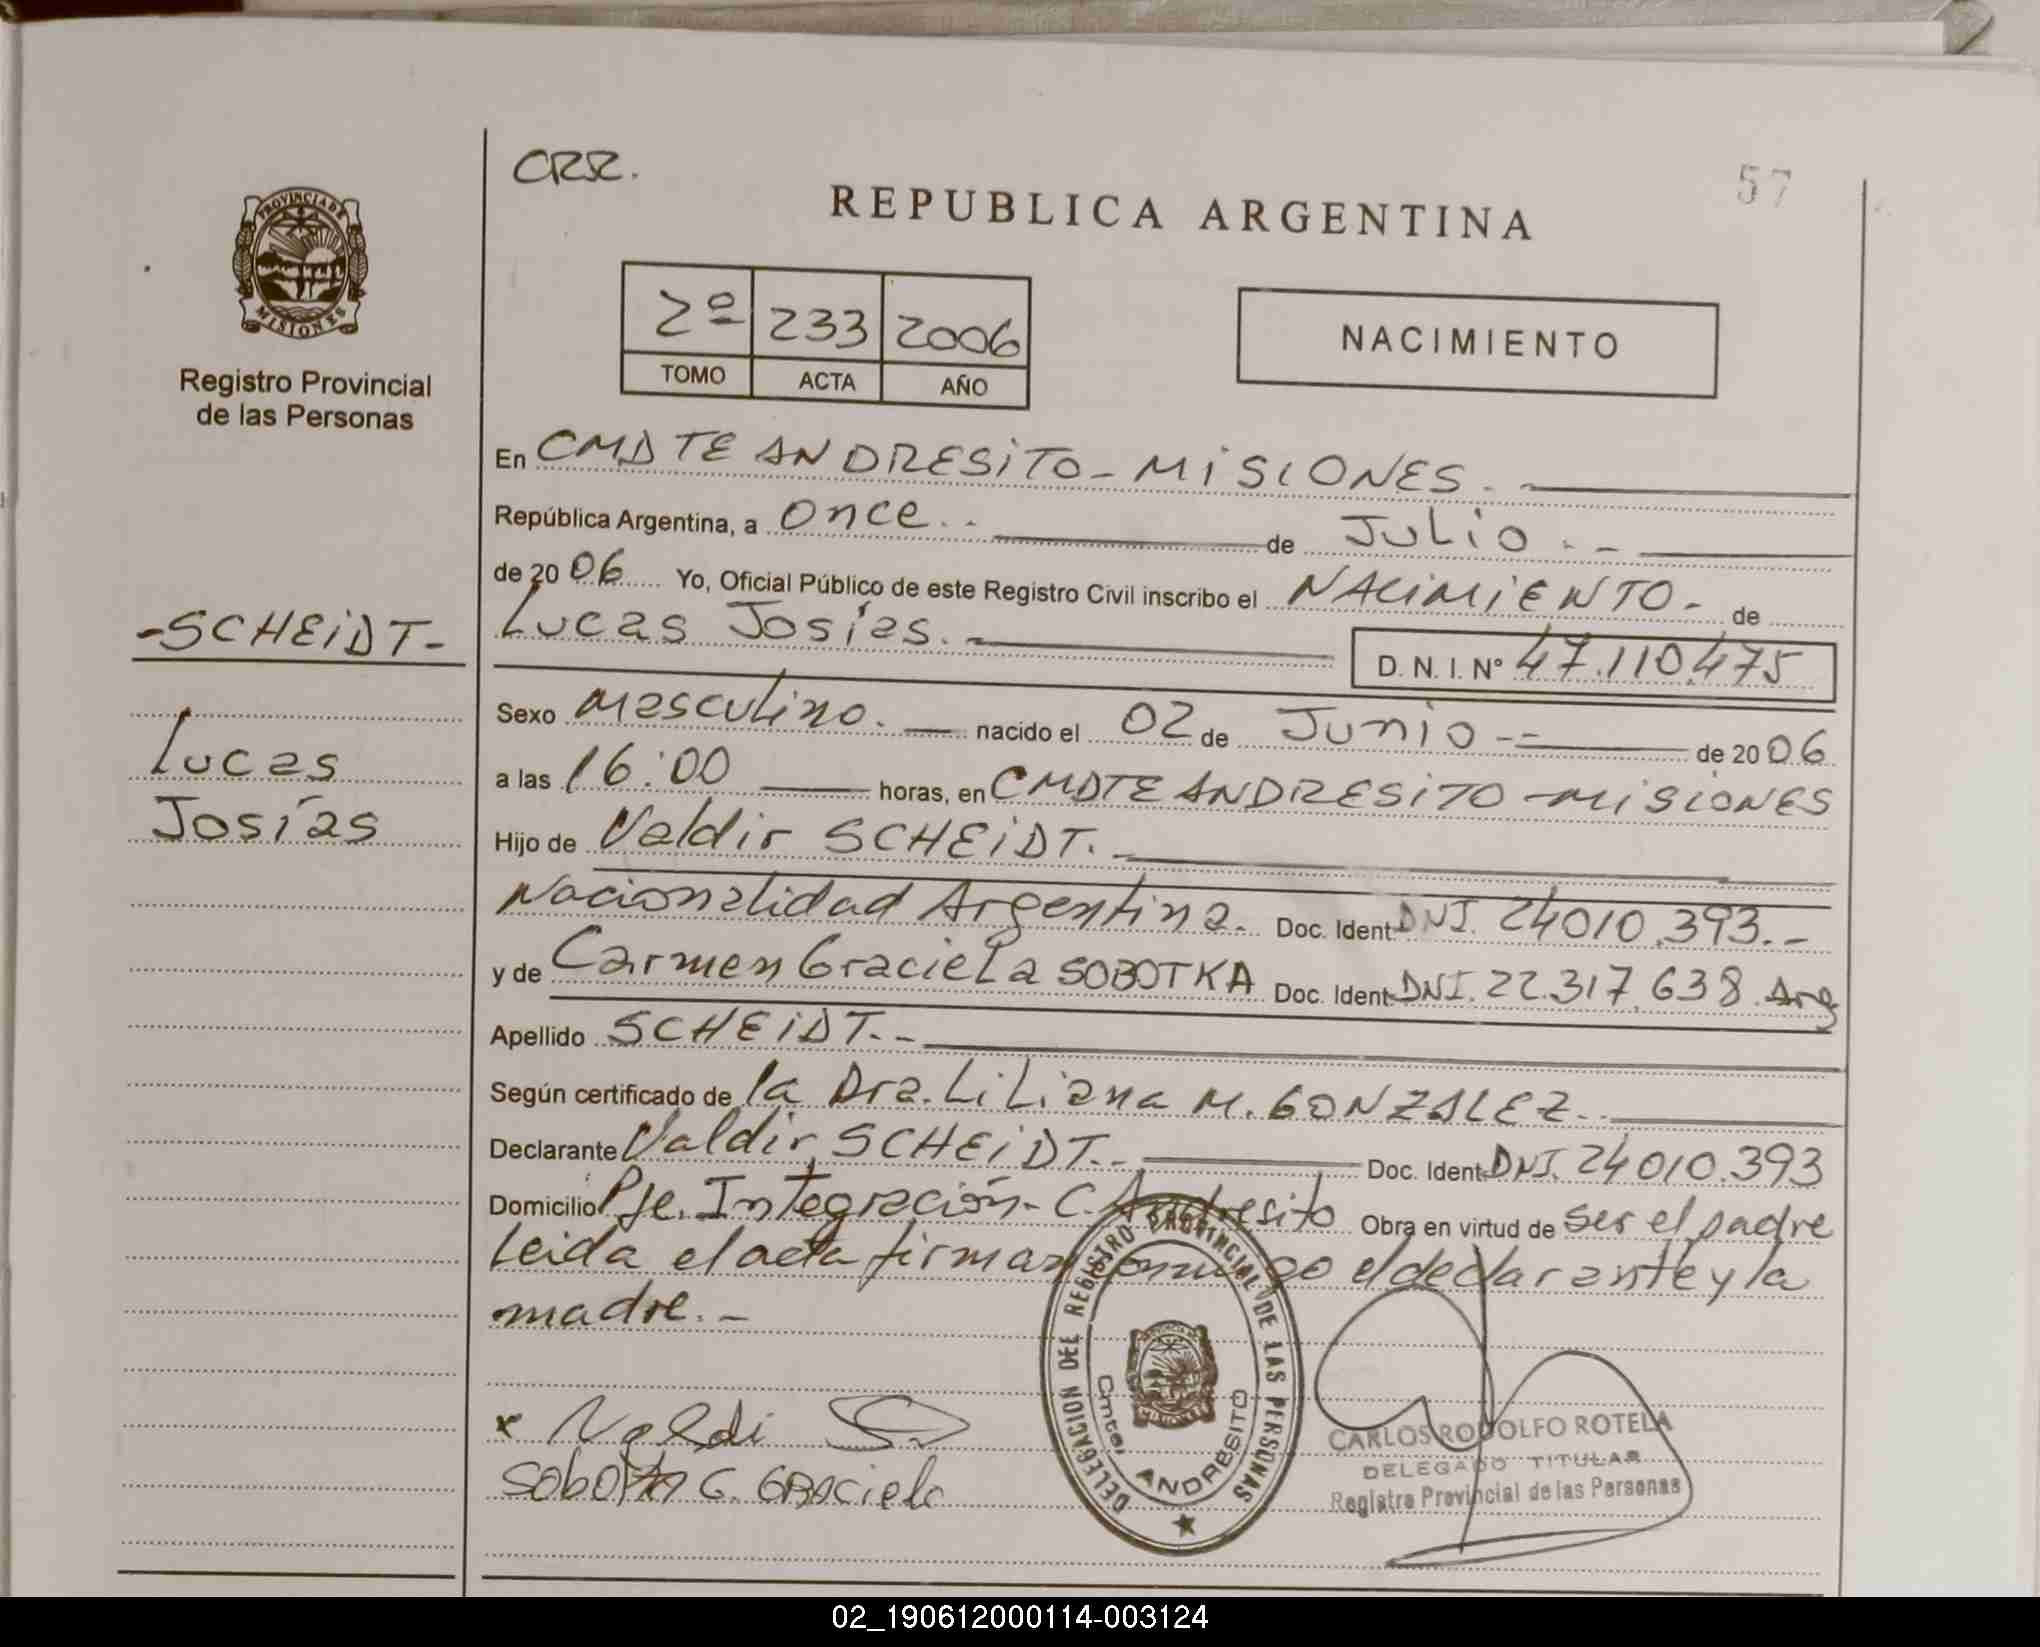 CRR.
57
REPUBLICA ARGENTINA
PROVINCIA DE
MISIONES
Registro Provincial
de las Personas
2º 233 2006
TOMO ACTA AÑO
NACIMIENTO
En CMDTE ANDRESITO - MISIONES.
República Argentina, a once.. de Julio.-
de 2006 Yo, Oficial Público de este Registro Civil inscribo el NACIMIENTO- de
Lucas Josías.- D. N. I. Nº 47.110.475
-SCHEIDT-
Lucas
Josías
Sexo masculino. nacido el 02 de Junio -- de 2006
a las 16:00 horas, en CMDTE ANDRESITO - MISIONES
Hijo de Valdir SCHEIDT.-
Nacionalidad Argentina. Doc. Ident DNI. 24010.393.-
y de Carmen Graciela SOBOTKA Doc. Ident DNI. 22.317.638 Arg
Apellido SCHEIDT.-
Según certificado de la Dra. Liliana M. GONZALEZ.
Declarante Valdir SCHEIDT.- Doc. Ident DNI. 24010.393
Domicilio Pje. Integración- C. Andresito Obra en virtud de ser el padre
Leida el acta firman conmigo el declarante y la
madre.-
x Valdi
Sobotka C. Graciela
DELEGACION DEL REGISTRO PROVINCIAL DE LAS PERSONAS
Cmte. ANDRESITO
CARLOS RODOLFO ROTELA
DELEGADO TITULAR
Registro Provincial de las Personas
02_190612000114-003124